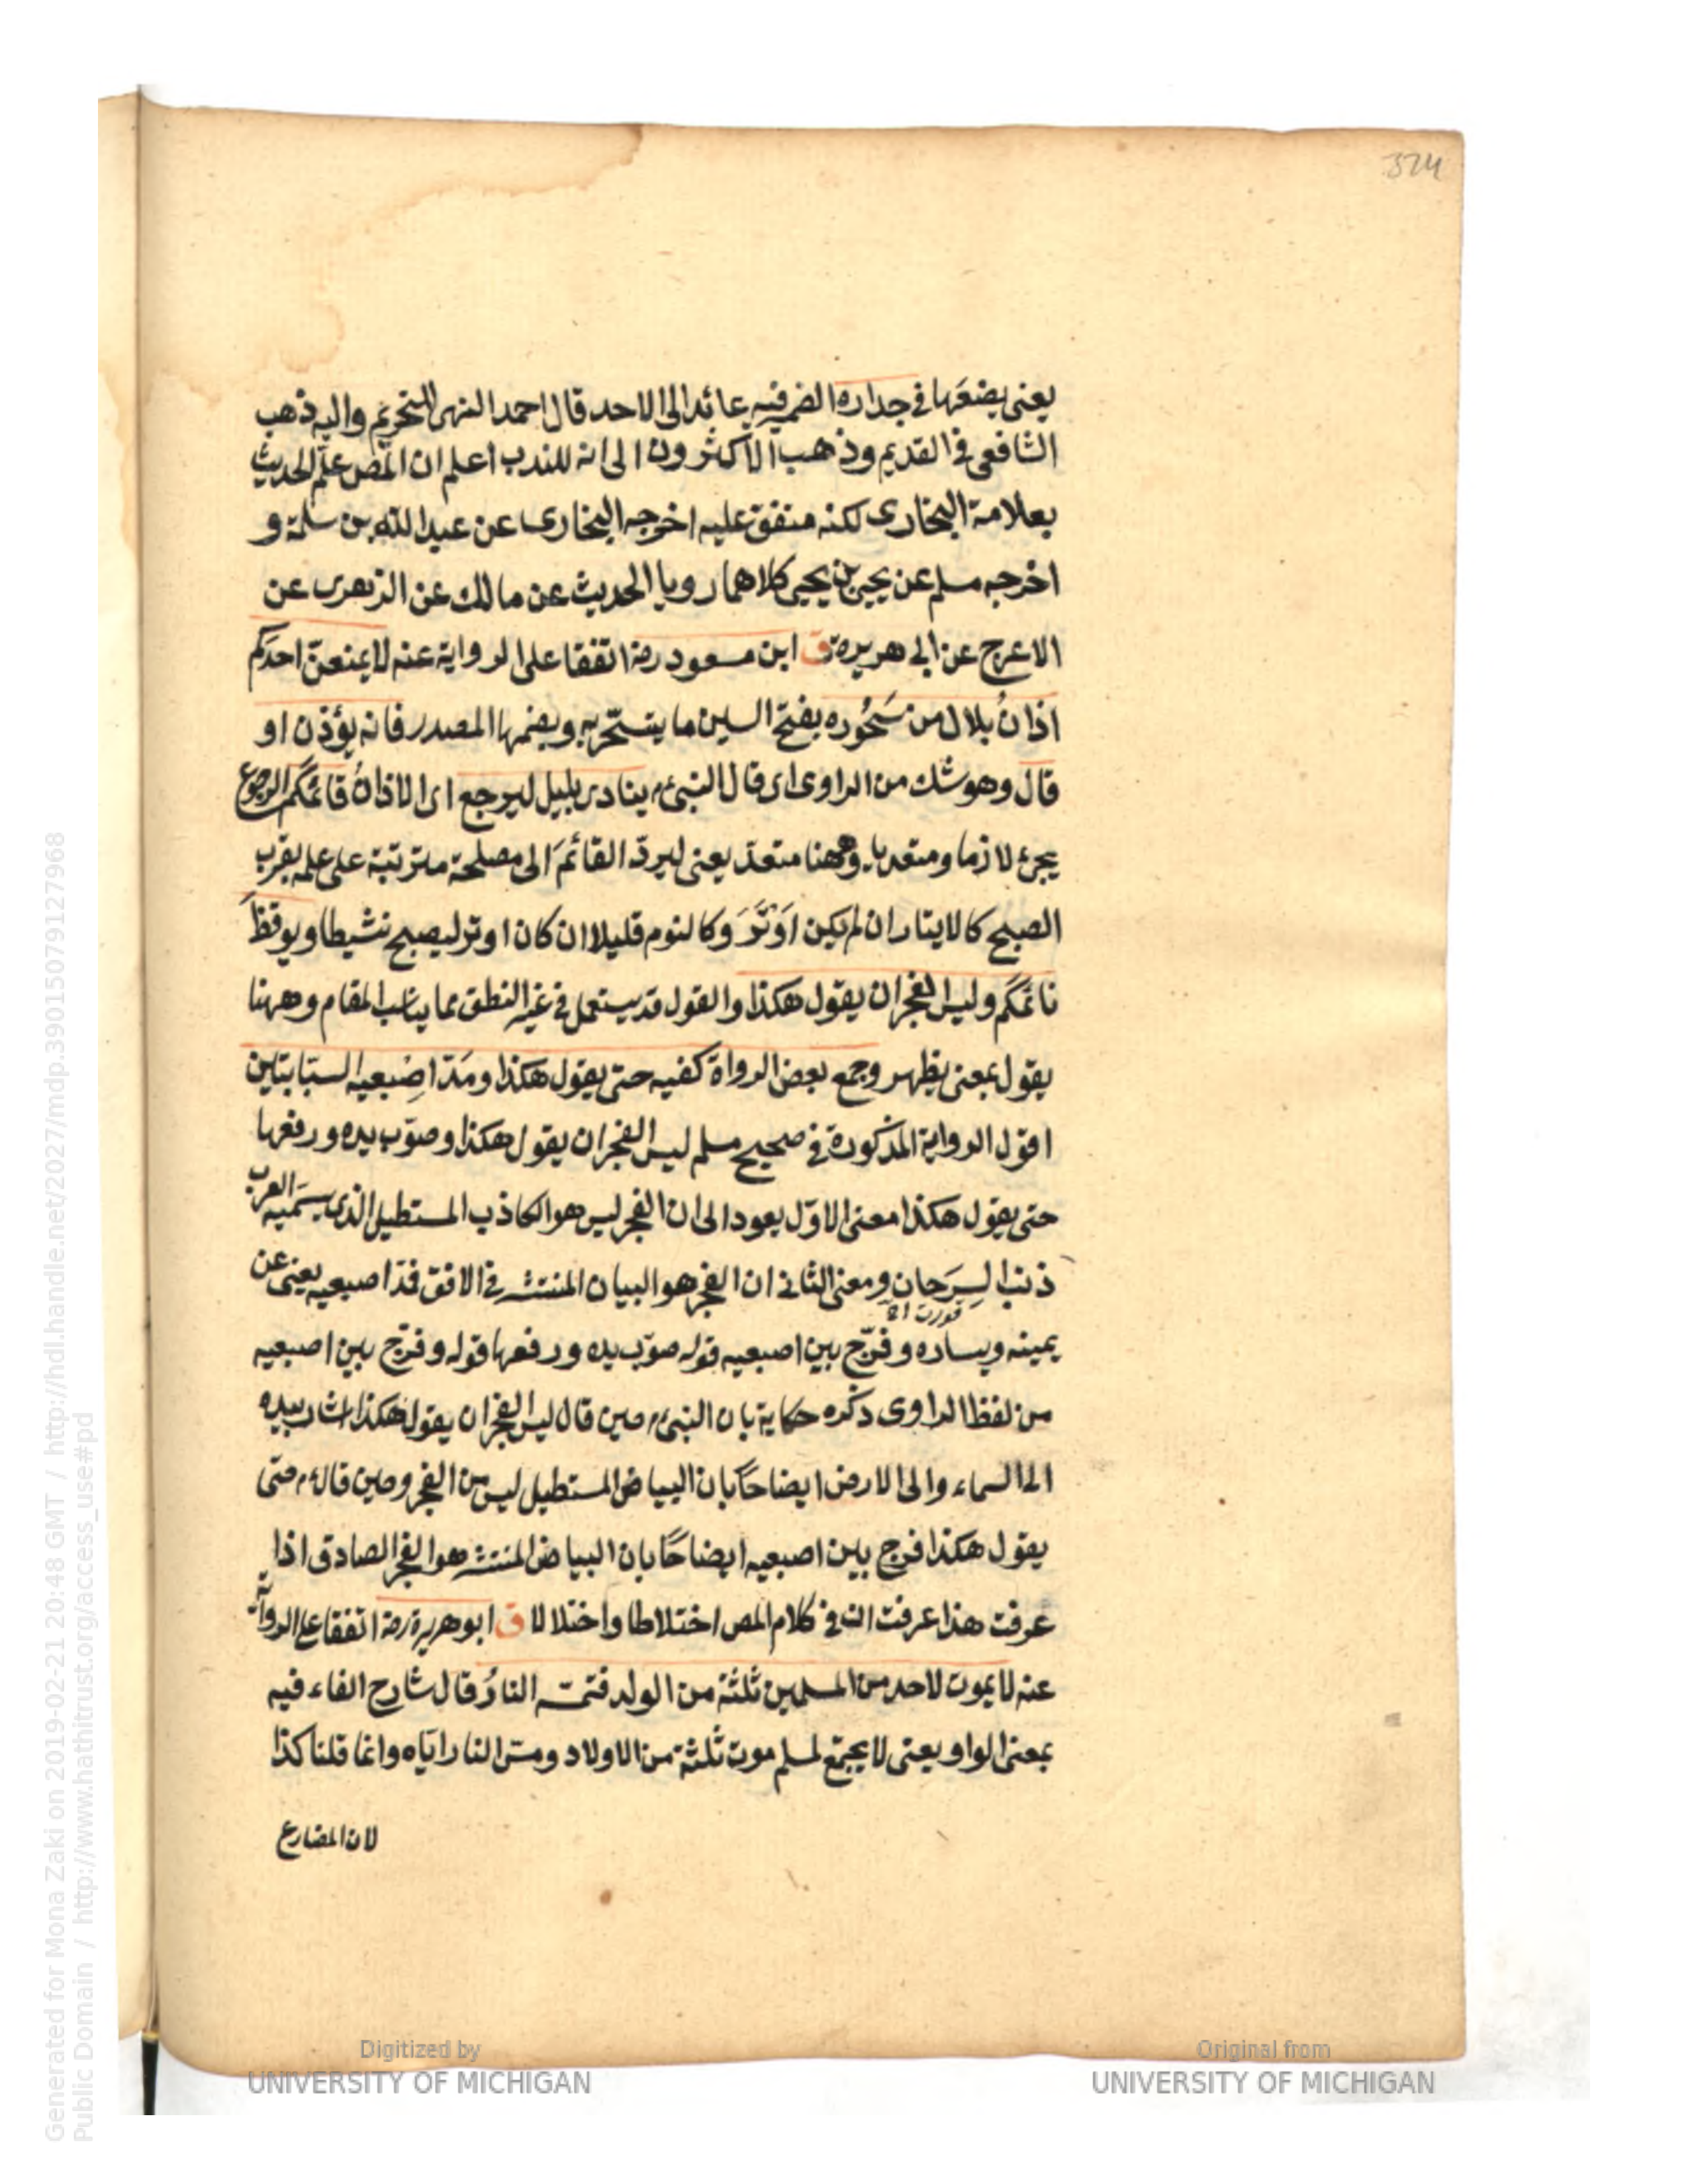 324
يعنى يضعها فى جداره الضمير فيه عائد الى الاحد قال احمد النهى للتحريم واليه ذهب
الشافعى فى القديم وذهب الاكثرون الى انه للندب اعلم ان المص علم الحديث
بعلامة البخارى لكنه متفق عليه اخرجه البخارى عن عبد الله بن سلمة و
اخرجه مسلم عن يحيى بن يحيى كلاهما رويا الحديث عن مالك عن الزهرى عن
الاعرج عن ابى هريرة ق ابن مسعود رضه اتفقا على الرواية عنه لا يمنعنّ احدَكم
اذانُ بلال من سَحُوره بفتح السين ما يتسحّر به وبضمها المصدر فانه يؤذن او
قال وهو شك من الراوى اى قال النبىء م ينادى بليل ليرجع اى الاذانُ قائمَكم الرجوع
يجئ لازما ومتعديا وههنا متعدّ يعنى ليردّ القائمَ الى مصلحة مترتبة على علمه بقرب
الصبح كالايتار ان لم يكن اَوْتَرَ وكالنوم قليلا ان كان اوتر ليصبح نشيطا ويوقظَ
نائمَكم وليس الفجر ان يقول هكذا والقول قد يستعمل فى غير النطق مما يناسب المقام وههنا
يقول بمعنى يظهر وجمع بعض الرواة كفيه حتى يقول هكذا ومَدّ اِصْبعيه السبابتين
اقول الرواية المذكورة فى صحيح مسلم ليس الفجر ان يقول هكذا وصوّب يده ورفعها
حتى يقول هكذا معنى الاوّل يعود الى ان الفجر ليس هو الكاذب المستطيل الذى يسميه العرب
ذنب السِرَحان ومعنى الثانى ان الفجر هو البيان المنتشر فى الافق فمدّ اصبعيه يعنى عن
يمينه ويساره وفرّج بين اصبعيه قوله صوّب يده ورفعها قوله وفرّج بين اصبعيه
من لفظ الراوى ذكره حكاية بان النبىء م حين قال ليس الفجر ان يقول هكذا اشار بيده
الى السماء والى الارض ايضاحًا بان البياض المستطيل ليس من الفجر وحين قال ء م حتى
يقول هكذا فرج بين اصبعيه ايضاحًا بان البياض المنتشر هو الفجر الصادق اذا
عرفت هذا عرفت ان فى كلام المص اختلاطا واختلالا ق ابو هريرة رضه اتفقا على الرواية
عنه لا يموت لاحد من المسلمين ثلثة من الولد فتمسّه النارُ قال شارح الفاء فيه
بمعنى الواو يعنى لا يجتمع لمسلم موت ثلثة من الاولاد ومسّ النار اياه وانما قلنا كذا
لان المضارع
Digitized by
UNIVERSITY OF MICHIGAN
Original from
UNIVERSITY OF MICHIGAN
Generated for Mona Zaki on 2019-02-21 20:48 GMT / http://hdl.handle.net/2027/mdp.39015079127968
Public Domain / http://www.hathitrust.org/access_use#pd